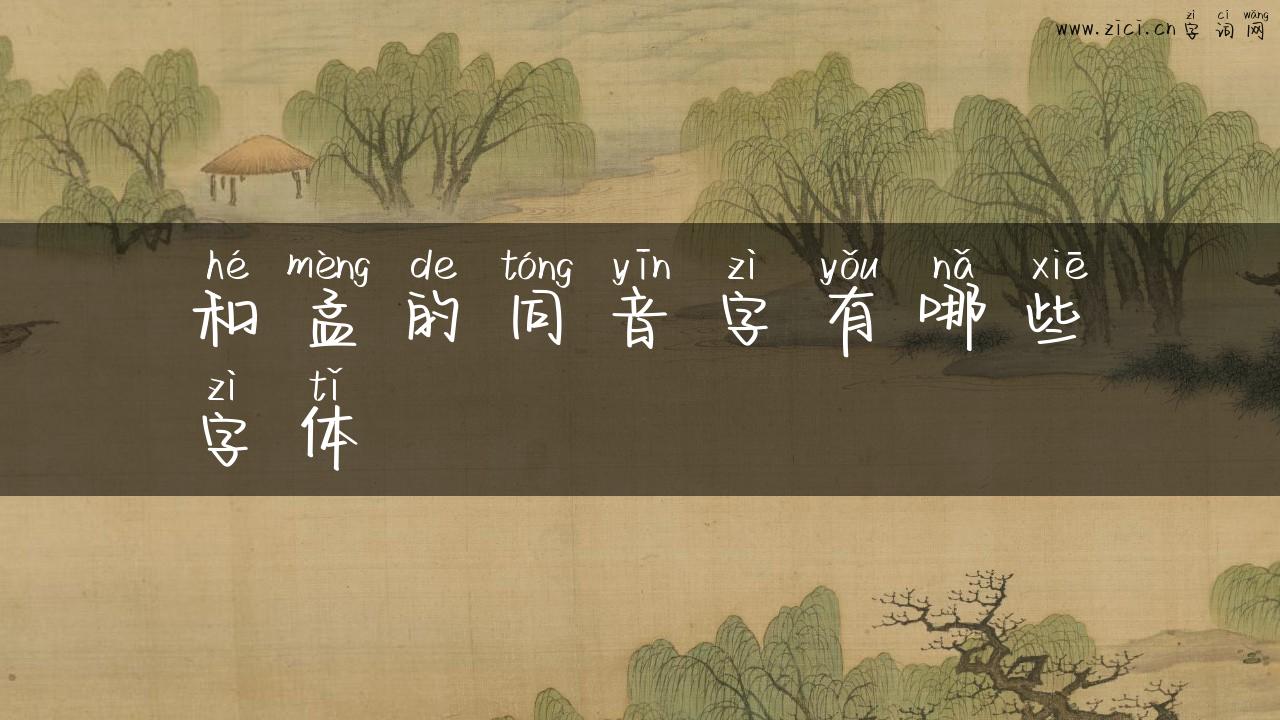 zì cí wǎng
www.zici.cn 字 词 网
hé mèng de tóng yīn zì yǒu nǎ xiē
和 孟 的 同 音 字 有 哪 些
zì tǐ
字 体